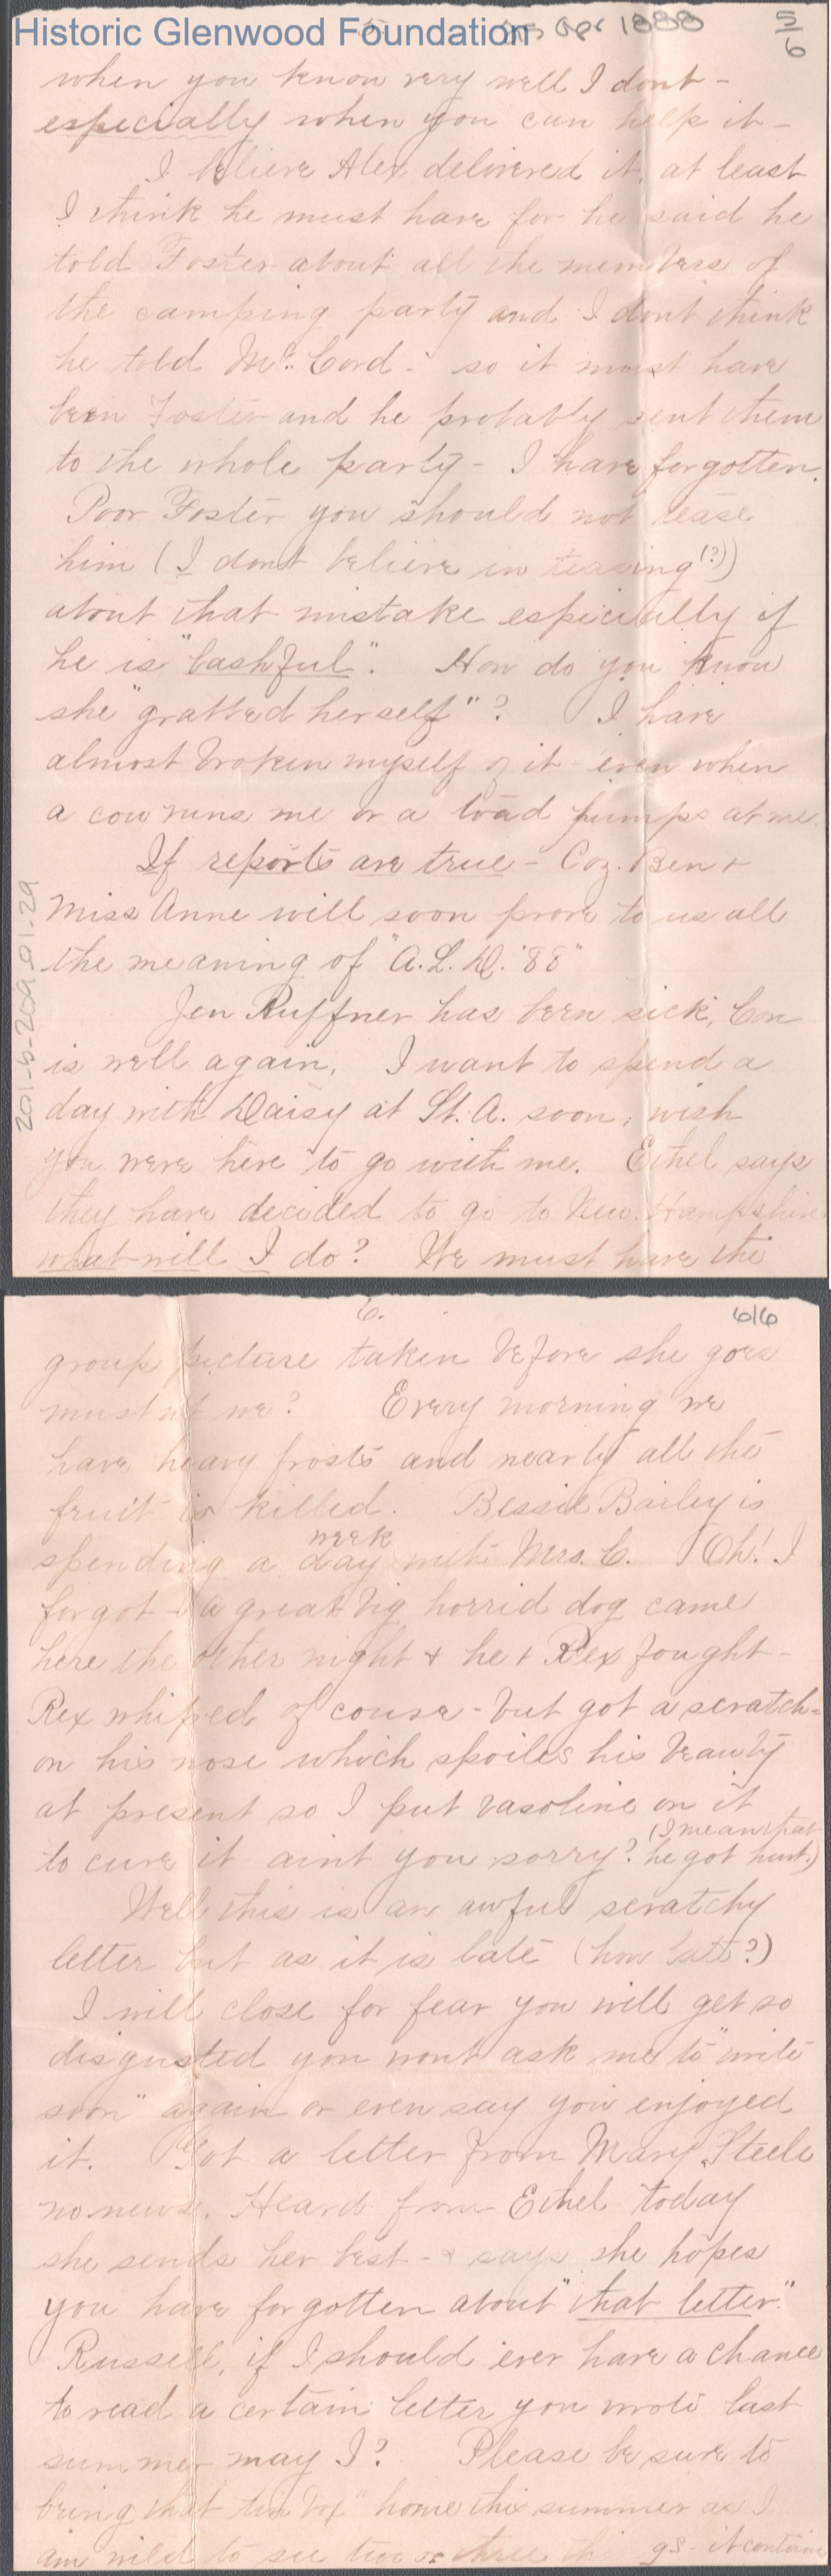 Historic Glenwood Foundation
5.
Apr 1888
5/6
when you know very well I dont -
especially when you can help it -
I believe Alex delivered it, at least
I think he must have for he said he
told Foster about all the members of
the camping party and I dont think
he told Mc. Cord - so it must have
been Foster and he probably sent them
to the whole party - I have forgotten.
Poor Foster you should not tease
him (I dont believe in teasing (?))
about that mistake especially if
he is "bashful". How do you know
she "gratted herself"? I have
almost broken myself of it - even when
a cow runs me or a toad jumps at me.
If reports are true - Coz. Ben +
Miss Anne will soon prove to us all
the meaning of "A.L.D. '88"
Jen Ruffner has been sick, Con
is well again. I want to spend a
day with Daisy at St. A. soon, wish
you were here to go with me. Ethel says
they have decided to go to New. Hampshire
what will I do? We must have the
201-5-209-01-29
6.
6/6
group picture taken before she goes
must not we? Every morning we
have heavy frosts and nearly all the
fruit is killed. Bessie Bailey is
week
spending a day with Mrs. C. Oh! I
forgot - a great big horrid dog came
here the other night + he + Rex fought -
Rex whiped of couse - but got a scratch -
on his nose which spoiles his beauty
at present so I put vasoline on it
(I mean that
to cure it aint you sorry? he got hurt.)
Well this is an awful scratchy
letter but as it is late (how late?)
I will close for fear you will get so
disgusted you wont ask me to "write
soon" again or even say you enjoyed
it. Got a letter from Mary Steele
no news. Heard from Ethel today
she sends her best - + says she hopes
you have forgotten about "that letter."
Russell, if I should ever have a chance
to read a certain letter you wrote last
summer may I? Please be sure to
bring that "tin box" home this summer as I
am wild to see two or three things it contains